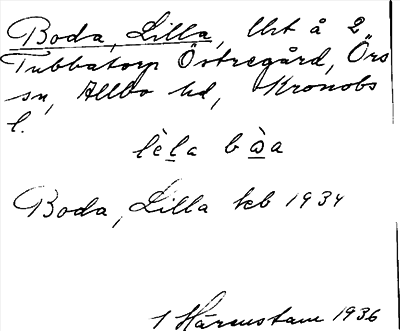 Boda, Lilla, Urt å 2
Tubbatorp Östregård, Örs
sn, Allbo hd, Kronobs
l.
lèla bòa
Boda, Lilla kcb 1934
1 Hårenstam 1936